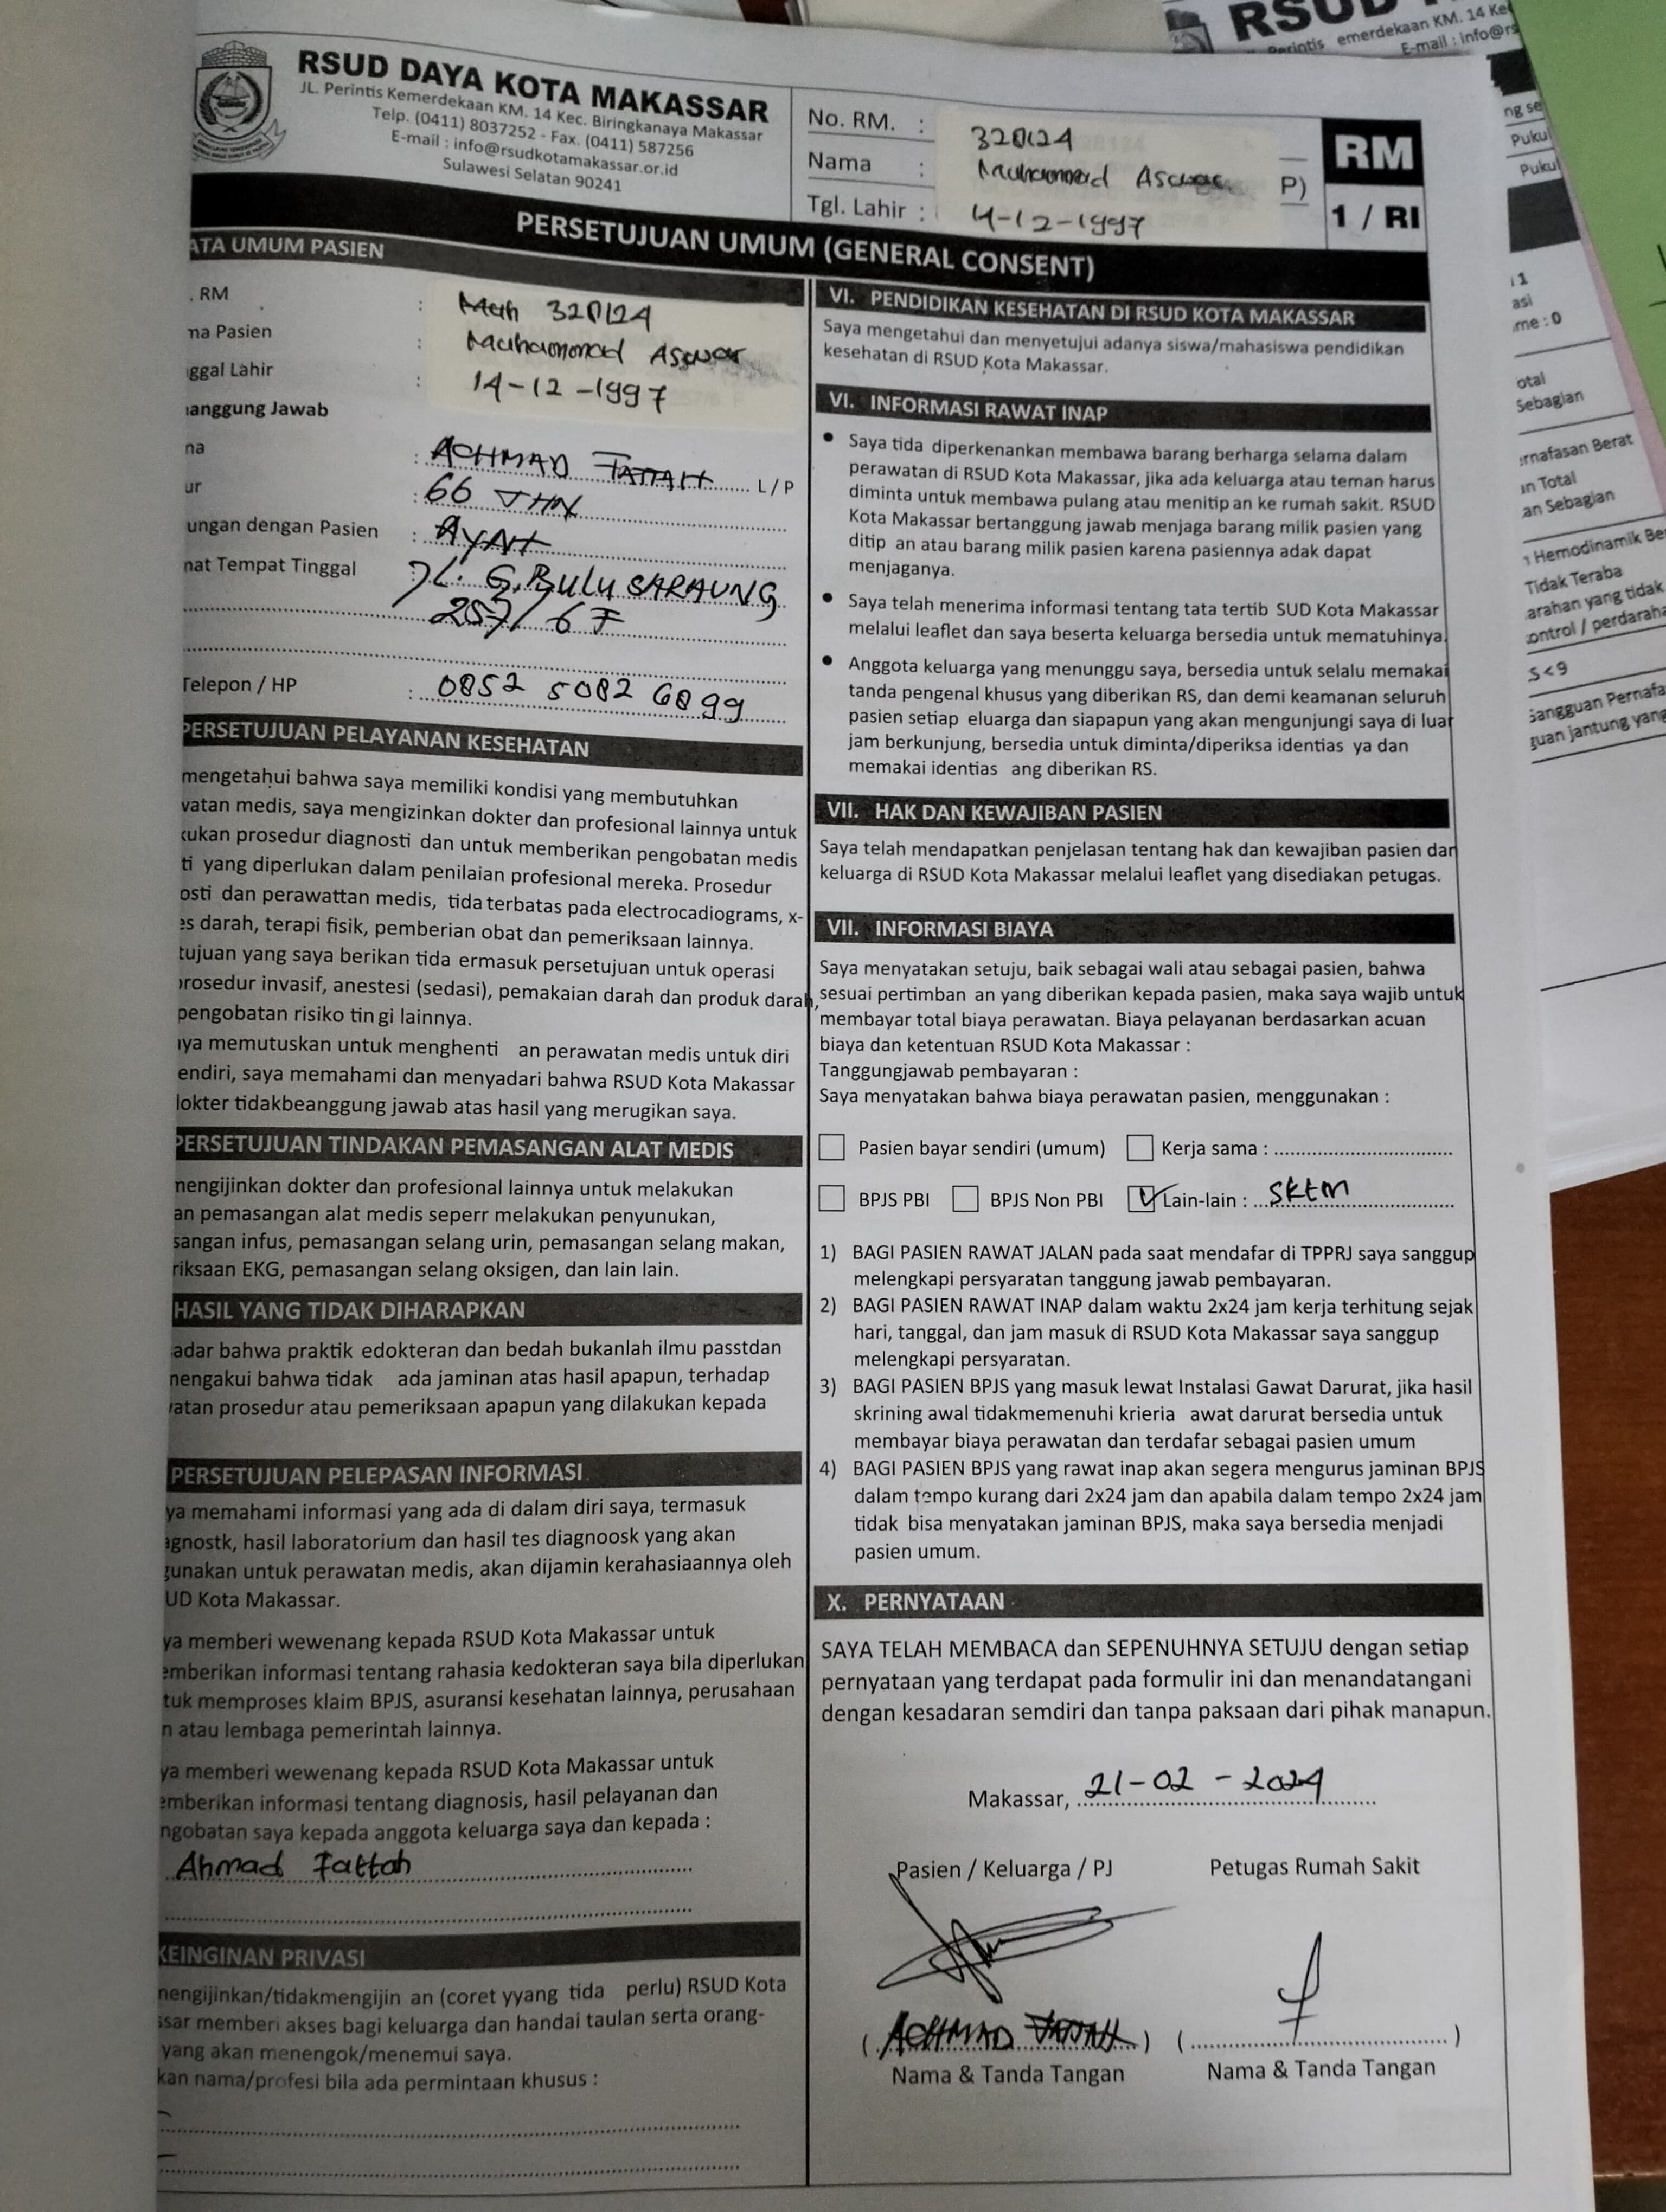 RSUD DAYA KOTA MAKASSAR
JL. Perintis Kemerdekaan KM. 14 Kec. Biringkanaya Makassar
Telp. (0411) 8037252 - Fax. (0411) 587256
E-mail : info@rsudkotamakassar.or.id
Sulawesi Selatan 90241
No. RM. : 320124
Nama : Muhammad Aswar P)
Tgl. Lahir : 14-12-1997
RM
1 / RI
PERSETUJUAN UMUM (GENERAL CONSENT)
ATA UMUM PASIEN
. RM : 320124
na Pasien : Muhammad Aswar
ggal Lahir : 14-12-1997
anggung Jawab
na : ACHMAD FATTAH L / P
ur : 66 THN
ungan dengan Pasien : AYAH
nat Tempat Tinggal JL. G. BULU SARAUNG
257/67
Telepon / HP : 0852 5082 6899
PERSETUJUAN PELAYANAN KESEHATAN
mengetahui bahwa saya memiliki kondisi yang membutuhkan
vatan medis, saya mengizinkan dokter dan profesional lainnya untuk
kukan prosedur diagnosti dan untuk memberikan pengobatan medis
ti yang diperlukan dalam penilaian profesional mereka. Prosedur
osti dan perawattan medis, tida terbatas pada electrocadiograms, x-
es darah, terapi fisik, pemberian obat dan pemeriksaan lainnya.
tujuan yang saya berikan tida ermasuk persetujuan untuk operasi
prosedur invasif, anestesi (sedasi), pemakaian darah dan produk darah,
pengobatan risiko tin gi lainnya.
ya memutuskan untuk menghenti an perawatan medis untuk diri
endiri, saya memahami dan menyadari bahwa RSUD Kota Makassar
lokter tidakbeanggung jawab atas hasil yang merugikan saya.
PERSETUJUAN TINDAKAN PEMASANGAN ALAT MEDIS
nengijinkan dokter dan profesional lainnya untuk melakukan
an pemasangan alat medis seperr melakukan penyunukan,
sangan infus, pemasangan selang urin, pemasangan selang makan,
riksaan EKG, pemasangan selang oksigen, dan lain lain.
HASIL YANG TIDAK DIHARAPKAN
adar bahwa praktik edokteran dan bedah bukanlah ilmu passtdan
nengakui bahwa tidak ada jaminan atas hasil apapun, terhadap
vatan prosedur atau pemeriksaan apapun yang dilakukan kepada
PERSETUJUAN PELEPASAN INFORMASI
ya memahami informasi yang ada di dalam diri saya, termasuk
agnostk, hasil laboratorium dan hasil tes diagnoosk yang akan
gunakan untuk perawatan medis, akan dijamin kerahasiaannya oleh
UD Kota Makassar.
ya memberi wewenang kepada RSUD Kota Makassar untuk
emberikan informasi tentang rahasia kedokteran saya bila diperlukan
tuk memproses klaim BPJS, asuransi kesehatan lainnya, perusahaan
n atau lembaga pemerintah lainnya.
ya memberi wewenang kepada RSUD Kota Makassar untuk
emberikan informasi tentang diagnosis, hasil pelayanan dan
ngobatan saya kepada anggota keluarga saya dan kepada :
Ahmad Fattah
KEINGINAN PRIVASI
nengijinkan/tidakmengijin an (coret yyang tida perlu) RSUD Kota
ssar memberi akses bagi keluarga dan handai taulan serta orang-
yang akan menengok/menemui saya.
kan nama/profesi bila ada permintaan khusus :
VI. PENDIDIKAN KESEHATAN DI RSUD KOTA MAKASSAR
Saya mengetahui dan menyetujui adanya siswa/mahasiswa pendidikan
kesehatan di RSUD Kota Makassar.
VI. INFORMASI RAWAT INAP
• Saya tida diperkenankan membawa barang berharga selama dalam
perawatan di RSUD Kota Makassar, jika ada keluarga atau teman harus
diminta untuk membawa pulang atau menitip an ke rumah sakit. RSUD
Kota Makassar bertanggung jawab menjaga barang milik pasien yang
ditip an atau barang milik pasien karena pasiennya adak dapat
menjaganya.
• Saya telah menerima informasi tentang tata tertib SUD Kota Makassar
melalui leaflet dan saya beserta keluarga bersedia untuk mematuhinya.
• Anggota keluarga yang menunggu saya, bersedia untuk selalu memakai
tanda pengenal khusus yang diberikan RS, dan demi keamanan seluruh
pasien setiap eluarga dan siapapun yang akan mengunjungi saya di luar
jam berkunjung, bersedia untuk diminta/diperiksa identias ya dan
memakai identias ang diberikan RS.
VII. HAK DAN KEWAJIBAN PASIEN
Saya telah mendapatkan penjelasan tentang hak dan kewajiban pasien dan
keluarga di RSUD Kota Makassar melalui leaflet yang disediakan petugas.
VII. INFORMASI BIAYA
Saya menyatakan setuju, baik sebagai wali atau sebagai pasien, bahwa
sesuai pertimban an yang diberikan kepada pasien, maka saya wajib untuk
membayar total biaya perawatan. Biaya pelayanan berdasarkan acuan
biaya dan ketentuan RSUD Kota Makassar :
Tanggungjawab pembayaran :
Saya menyatakan bahwa biaya perawatan pasien, menggunakan :
Pasien bayar sendiri (umum) Kerja sama :
BPJS PBI BPJS Non PBI Lain-lain : SKTM
1) BAGI PASIEN RAWAT JALAN pada saat mendafar di TPPRJ saya sanggup
melengkapi persyaratan tanggung jawab pembayaran.
2) BAGI PASIEN RAWAT INAP dalam waktu 2x24 jam kerja terhitung sejak
hari, tanggal, dan jam masuk di RSUD Kota Makassar saya sanggup
melengkapi persyaratan.
3) BAGI PASIEN BPJS yang masuk lewat Instalasi Gawat Darurat, jika hasil
skrining awal tidakmemenuhi krieria awat darurat bersedia untuk
membayar biaya perawatan dan terdafar sebagai pasien umum
4) BAGI PASIEN BPJS yang rawat inap akan segera mengurus jaminan BPJS
dalam tempo kurang dari 2x24 jam dan apabila dalam tempo 2x24 jam
tidak bisa menyatakan jaminan BPJS, maka saya bersedia menjadi
pasien umum.
X. PERNYATAAN
SAYA TELAH MEMBACA dan SEPENUHNYA SETUJU dengan setiap
pernyataan yang terdapat pada formulir ini dan menandatangani
dengan kesadaran semdiri dan tanpa paksaan dari pihak manapun.
Makassar, 21-02-2024
Pasien / Keluarga / PJ Petugas Rumah Sakit
( ACHMAD FATTAH ) ( )
Nama & Tanda Tangan Nama & Tanda Tangan
emerdekaan KM. 14 Kec
E-mail : info@rs
ng se
Puku
Puku
asi
me : 0
otal
Sebagian
rnafasan Berat
an Total
an Sebagian
Hemodinamik Be
Tidak Teraba
arahan yang tidak
ontrol / perdaraha
S<9
Gangguan Pernafa
guan jantung yang